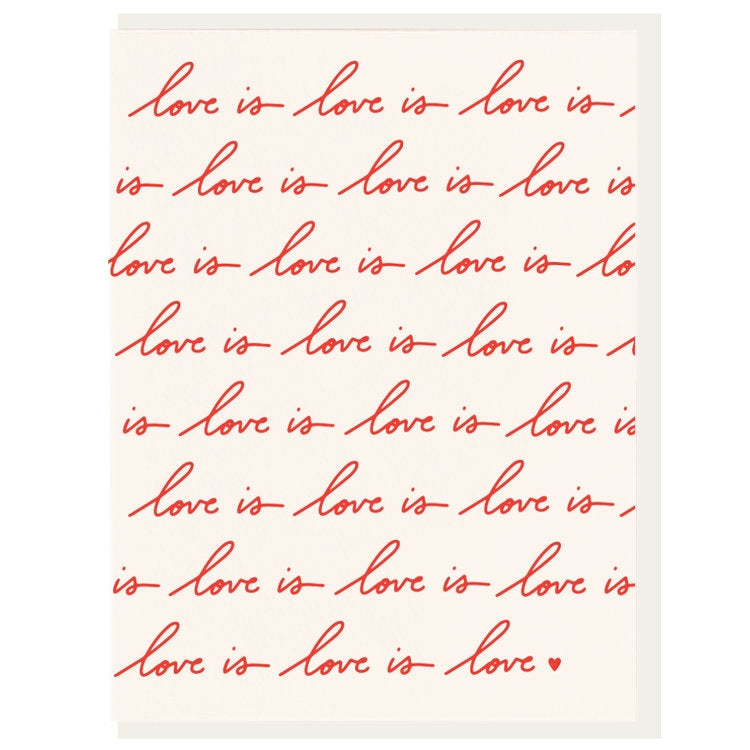 love is love is love is
is love is love is love is
love is love is love is lo
love is love is love is
is love is love is love is
love is love is love is
is love is love is love is
love is love is love ♥